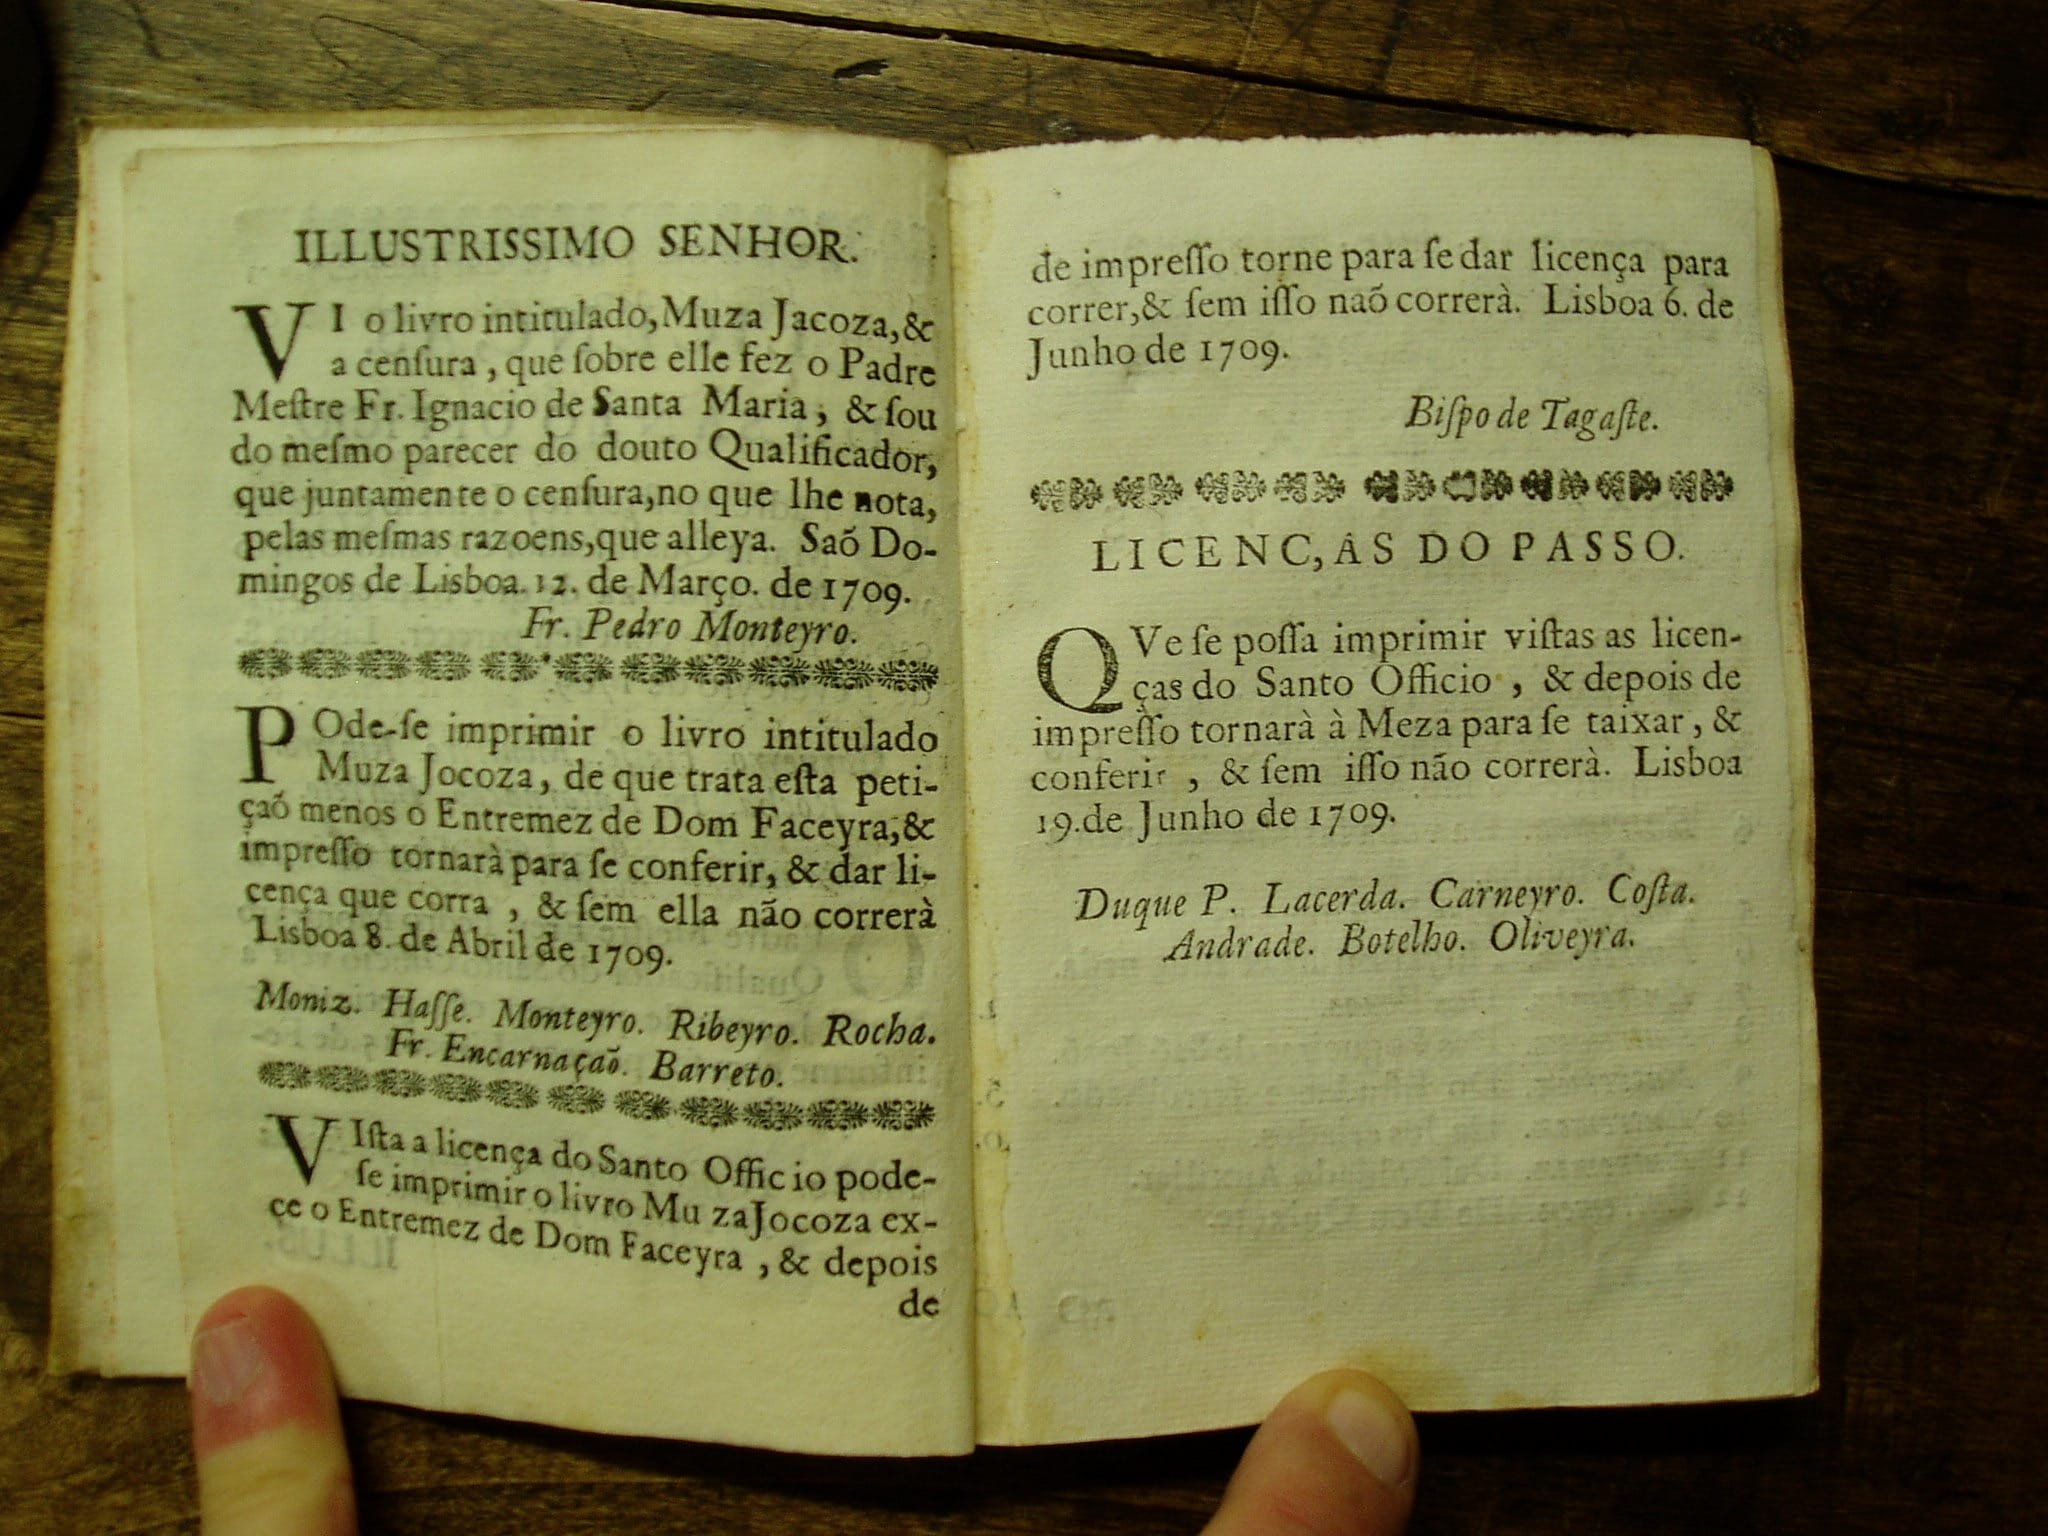 ILLUSTRISSIMO SENHOR.
VI o livro intitulado, Muza Jacoza, &
a cenſura, que ſobre elle fez o Padre
Meſtre Fr. Ignacio de Santa Maria, & ſou
do meſmo parecer do douto Qualificador,
que juntamente o cenſura, no que lhe nota,
pelas meſmas razoens, que alleya. Saõ Do-
mingos de Lisboa. 12. de Março. de 1709.
Fr. Pedro Monteyro.
POde-ſe imprimir o livro intitulado
Muza Jocoza, de que trata eſta peti-
çaõ menos o Entremez de Dom Faceyra, &
impreſſo tornarà para ſe conferir, & dar li-
cença que corra, & ſem ella não correrà
Lisboa 8. de Abril de 1709.
Moniz. Haſſe. Monteyro. Ribeyro. Rocha.
Fr. Encarnaçaõ. Barreto.
VIſta a licença do Santo Officio pode-
ſe imprimir o livro Muza Jocoza ex-
ce o Entremez de Dom Faceyra, & depois
de
de impreſſo torne para ſe dar licença para
correr, & ſem iſſo naõ correrà. Lisboa 6. de
Junho de 1709.
Biſpo de Tagaſte.
LICENC,AS DO PASSO.
QVe ſe poſſa imprimir viſtas as licen-
ças do Santo Officio, & depois de
impreſſo tornarà à Meza para ſe taixar, &
conferir, & ſem iſſo não correrà. Lisboa
19. de Junho de 1709.
Duque P. Lacerda. Carneyro. Coſta.
Andrade. Botelho. Oliveyra.